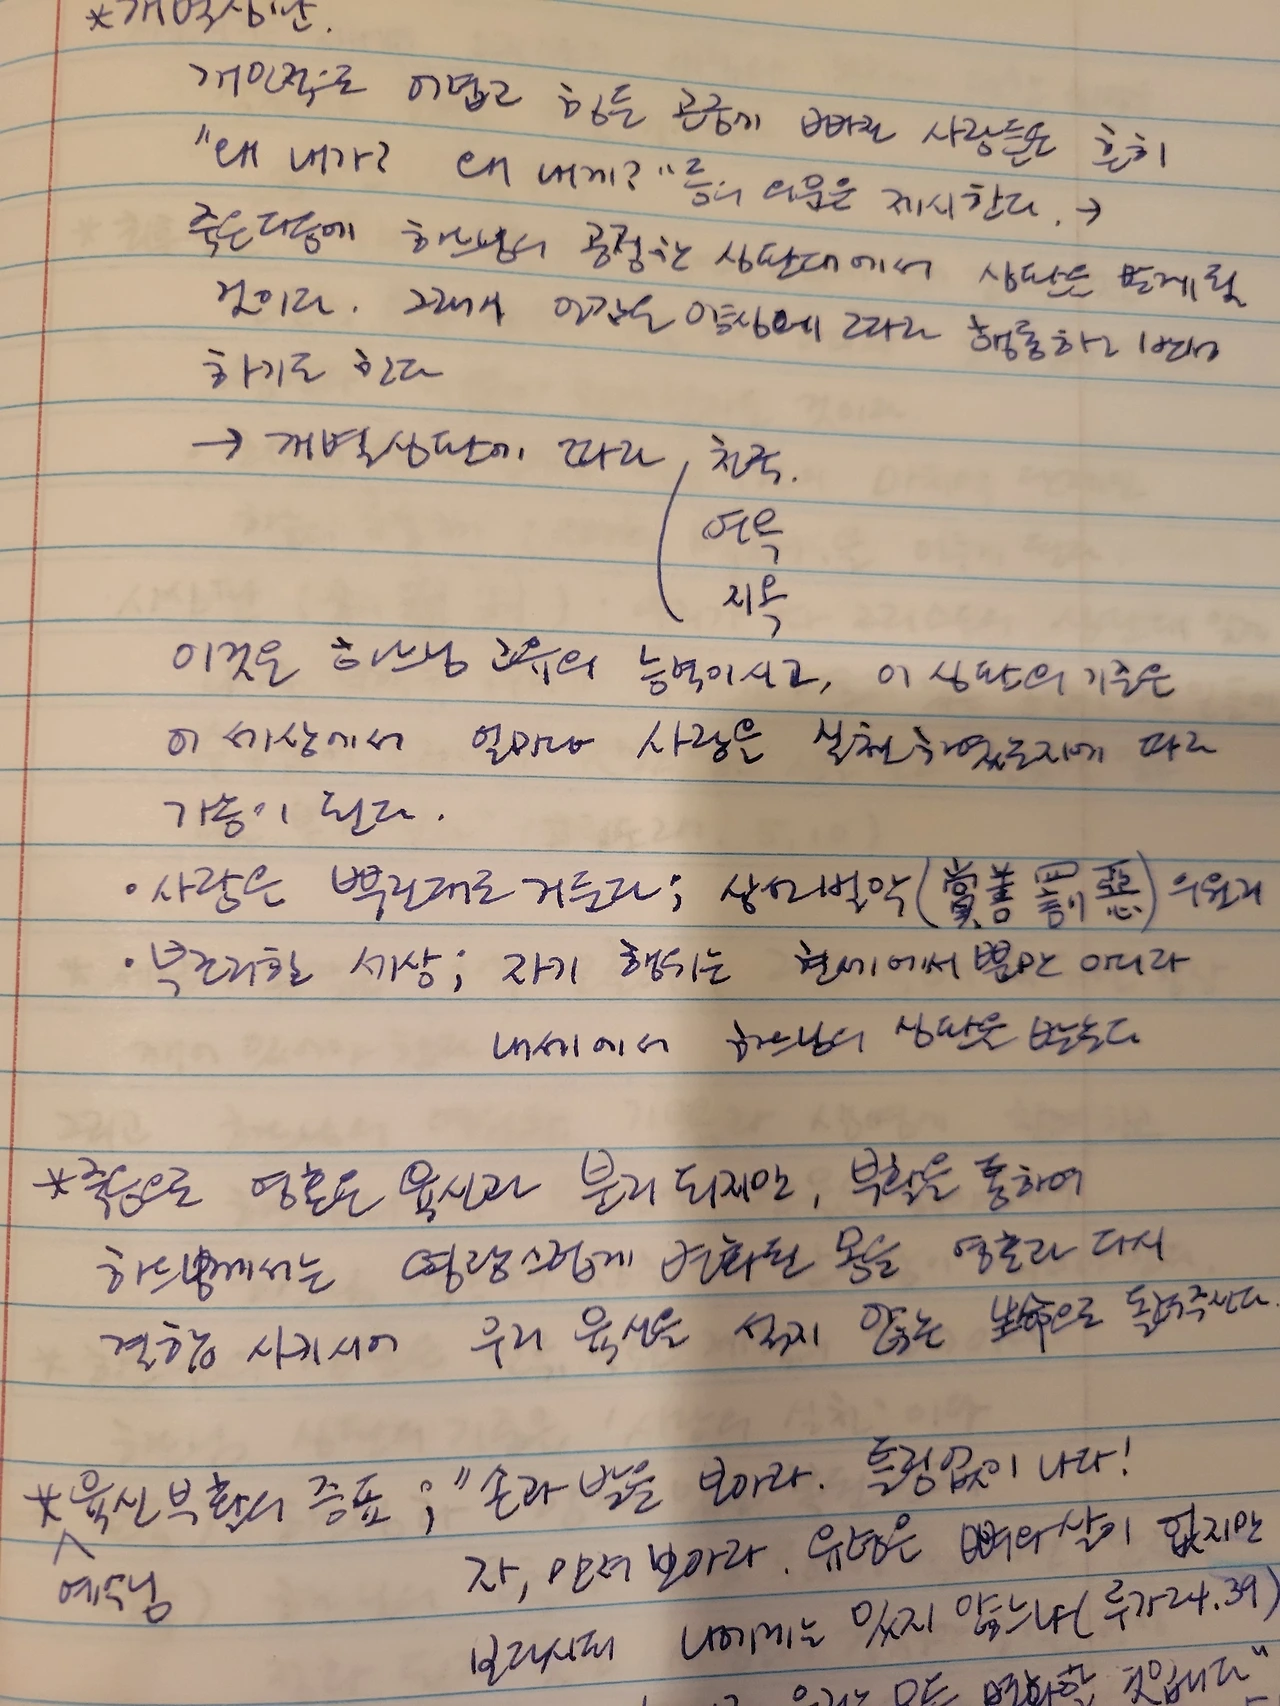 *개별심판.
개인적으로 어렵고 힘든 곤궁에 빠진 사람들은 흔히
"왜 내가? 왜 내게?" 등의 의문을 제시한다. →
죽은 다음에 하느님의 공정한 심판대에서 심판을 받게 될
것이다. 그래서 인간은 양심에 따라 행동하고 반성
하기도 한다
→ 개별심판에 따라 천국.
연옥
지옥
이것은 하느님 고유의 능력이시고, 이 심판의 기준은
이 세상에서 얼마나 사랑을 실천하였는지에 따라
가능이 된다.
• 사람은 뿌린대로 거둔다; 상선벌악(賞善罰惡)의 원리
• 부조리한 세상; 자기 행위는 현세에서 뿐만 아니라
내세에서 하느님의 심판을 받는다
*죽음으로 영혼은 육신과 분리 되지만, 부활을 통하여
하느님께서는 영광스럽게 변화된 몸을 영혼과 다시
결합 시키시어 우리 육신을 썩지 않는 生命으로 돌려주신다.
*육신 부활의 증표; "손과 발을 보아라. 틀림없이 나다!
예수님
자, 만져 보아라. 유령은 뼈와 살이 없지만
보다시피 나에게는 있지 않느냐(루가24.39)
우리는 모두 변화할 것입니다"